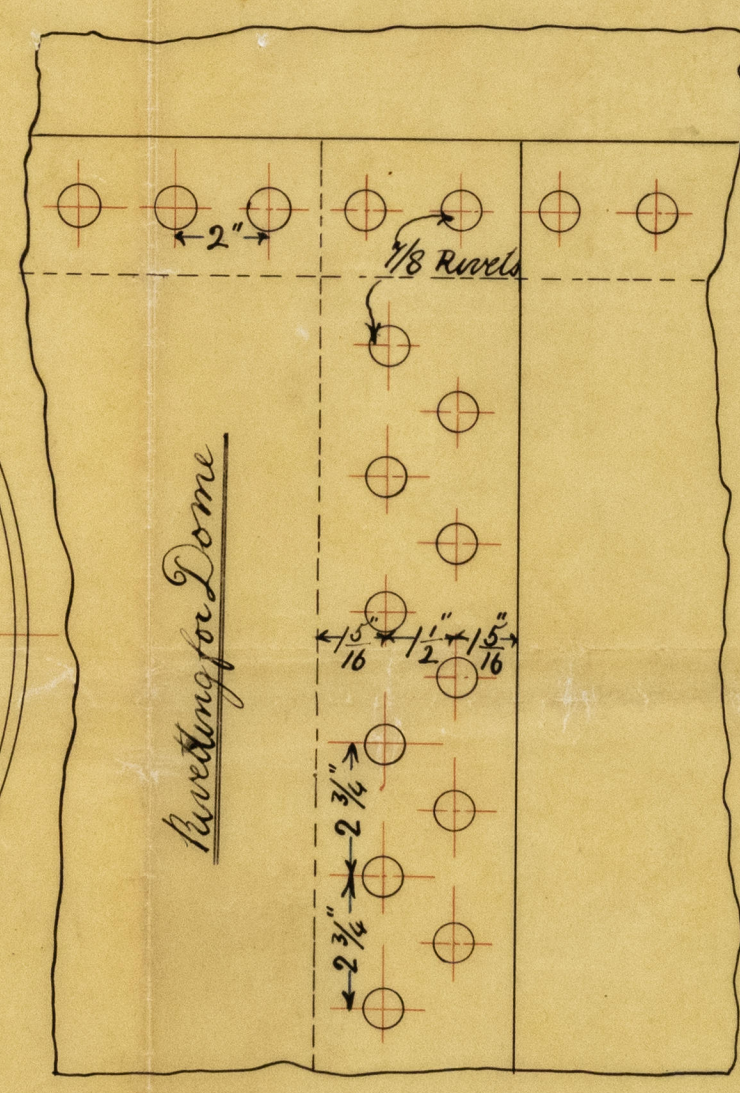 2"
7/8 Rivets
Rivetting for Dome
1 5/16" 1 1/2" 1 5/16"
2 3/4"
2 3/4"